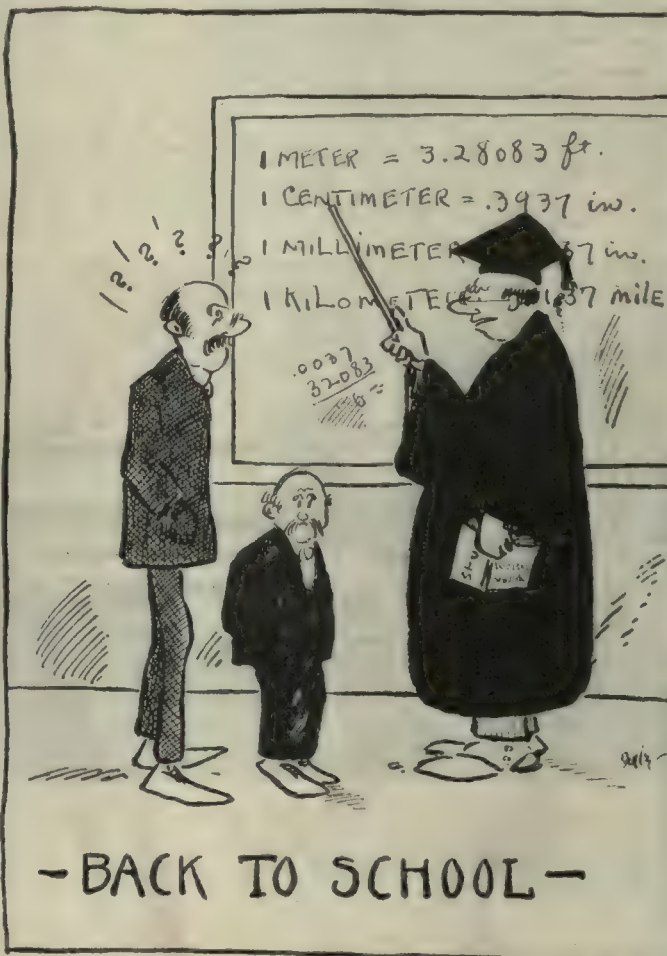 1 METER = 3.28083 ft.
1 CENTIMETER = .3937 in.
1 MILLIMETER 37 in.
1 KILOMETER 37 mile
.0037
32083
? ? ? ? ?
- BACK TO SCHOOL -